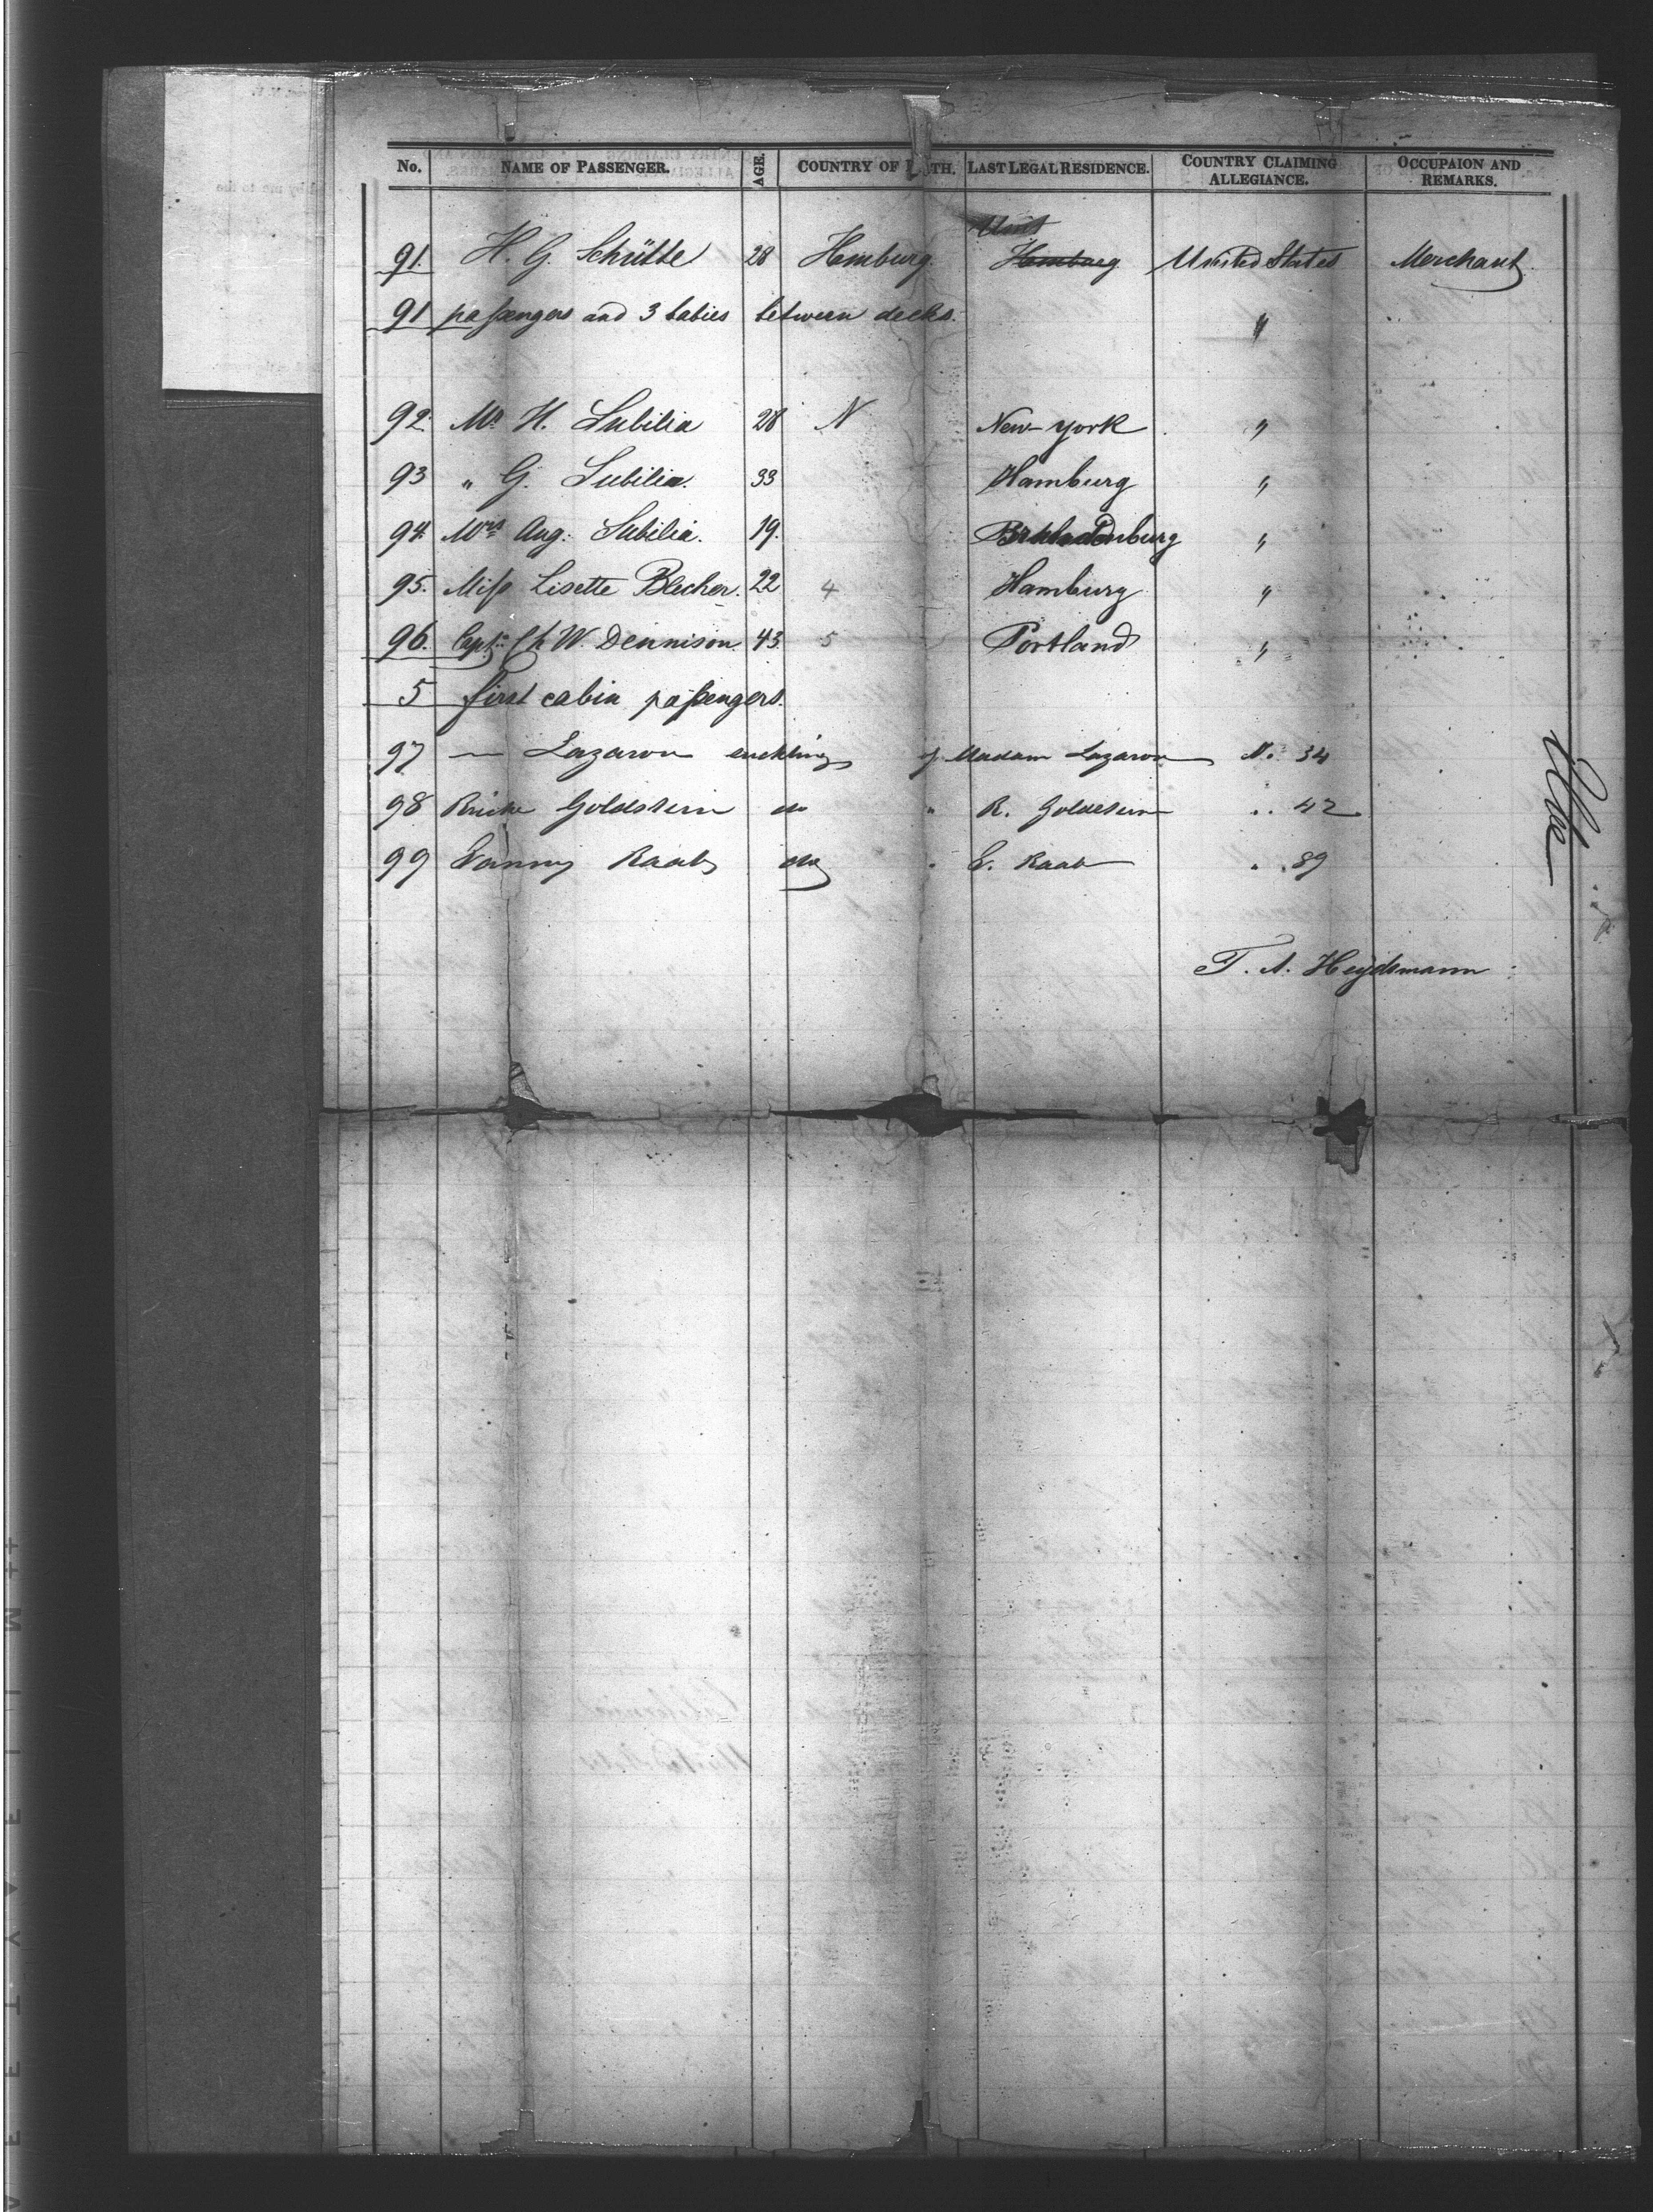 No. NAME OF PASSENGER. AGE. COUNTRY OF TH. LAST LEGAL RESIDENCE. COUNTRY CLAIMING ALLEGIANCE. OCCUPAION AND REMARKS.
Unit
91. H. G. Schütte 28 Hamburg. Hamburg United States Merchant.
91 passengers and 3 babies between decks. "
92. Mr. H. Subilia 28 N New-york "
93 " G. Subilia. 33 Hamburg "
94. Mrs Aug. Subilia. 19. "
95. Miss Lisette Blecher. 22 4 Hamburg "
96. Capt. Ch W. Dennison 43 5 Portland "
5 first cabin passengers.
97 — Lazaron suckling of Madam Lazaron N. 34
98 Goldstein do " R. Goldstein .. 42
99 Fanny Raab do " E. Raab . . 89
T. A. Heydtmann